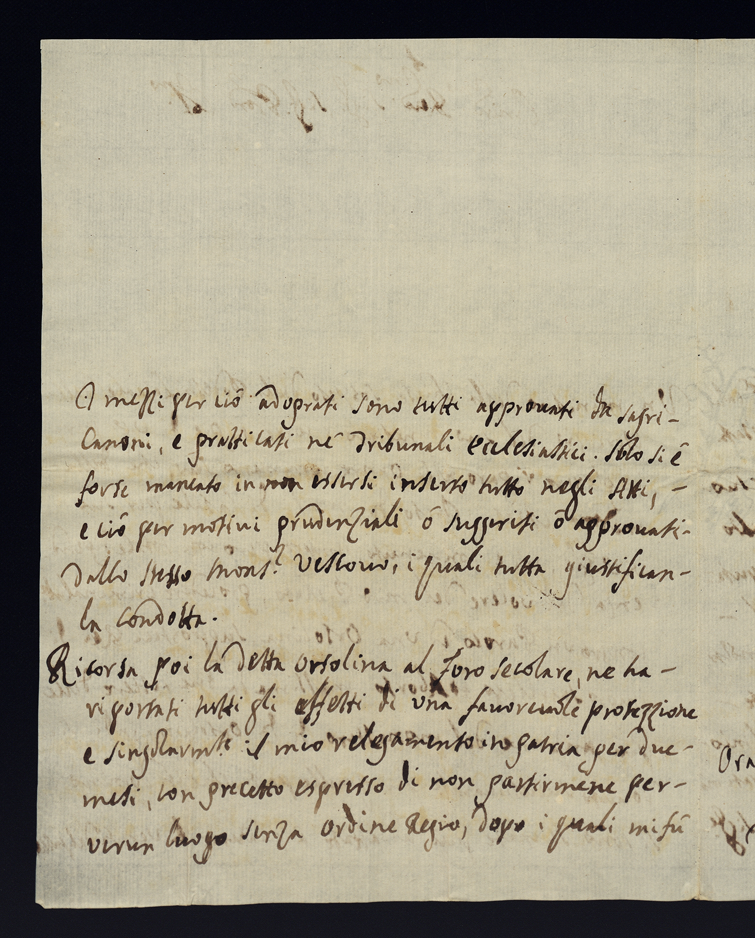 I mezzi per ciò adoprati sono tutti approuati da sagri-
Canoni, e pratticati ne Tribunali Ecclesiastici. Solo si è
forse mancato in non essersi inserto tutto negli Atti, -
e ciò per motiui prudenziali ò suggeriti ò approuati-
dallo stesso Mons.r Vescouo, i quali tutta giustifican-
la condotta.
Ricorsa poi la detta Orsolina al Foro secolare, ne ha-
riportati tutti gli effetti di una fauoreuole protezzione
e singolarm.te il mio relegamento in patria per due-
mesi, con precetto espresso di non partirmene per-
verun luogo senza ordine Regio, dopo i quali mi fù
Ora